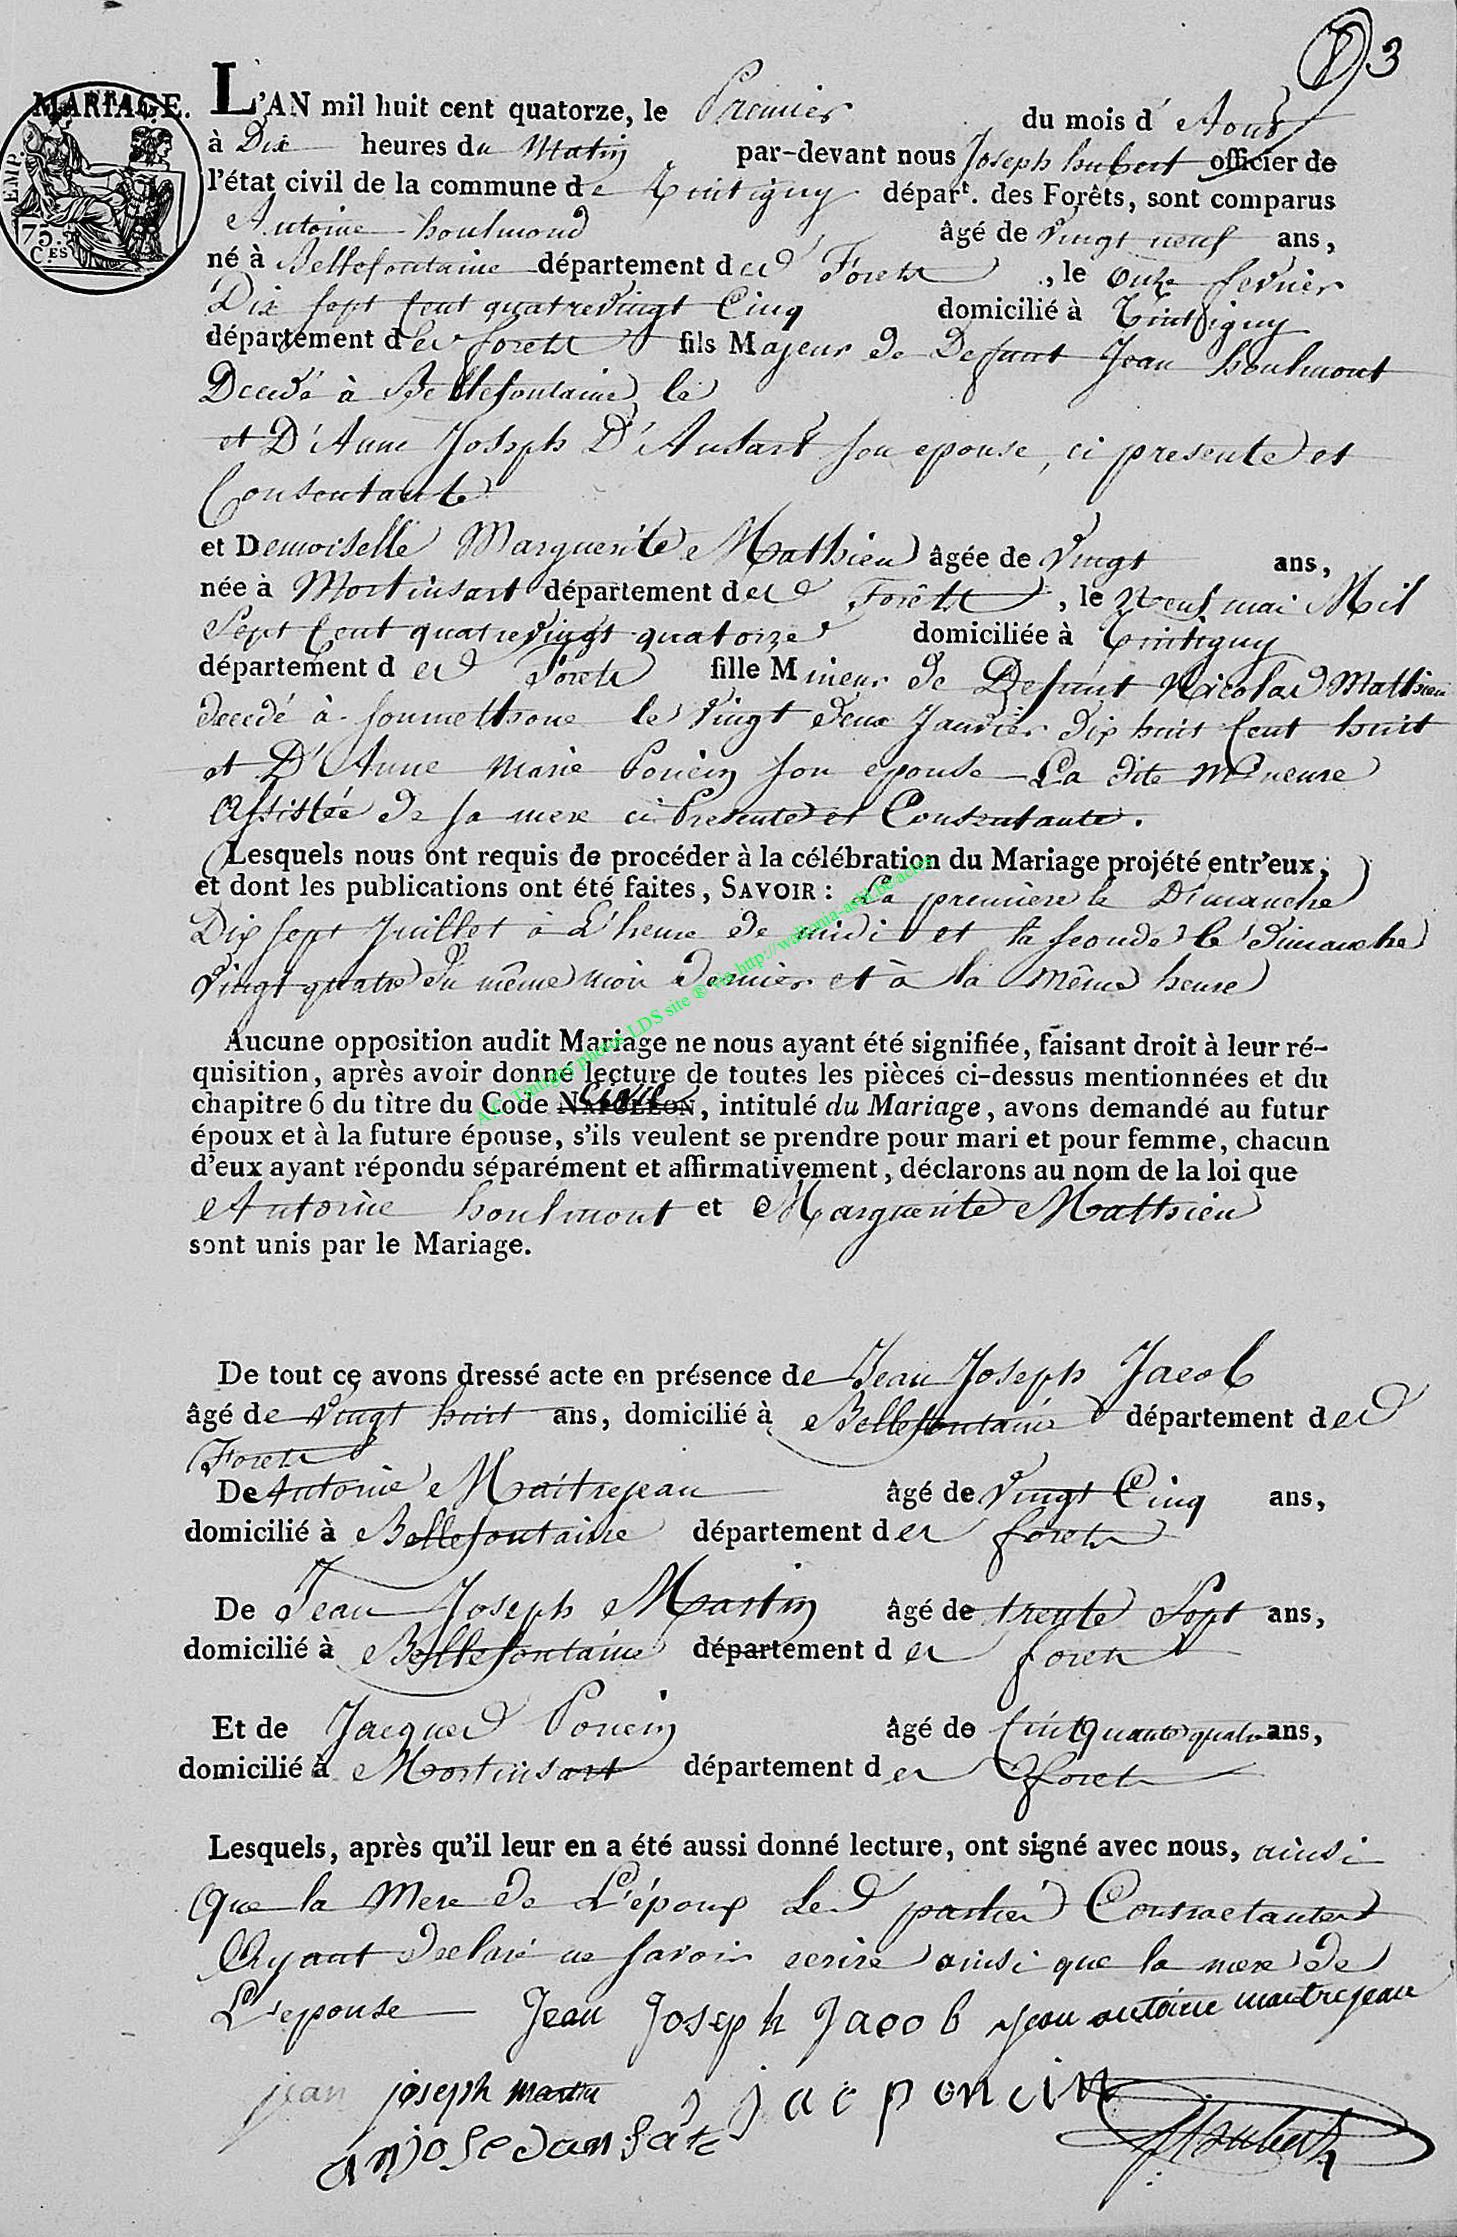 3
MARIAGE. L'AN mil huit cent quatorze, le Premier du mois d' Aout
à Dix heures du Matin par-devant nous Joseph hubert officier de
l'état civil de la commune de Tintigny départ. des Forêts, sont comparus
Antoine houlmond âgé de vingt neuf ans,
né à Bellefontaine département des Forets, le onze fevrier
Dix sept Cent quatrevingt Cinq domicilié à Tintigny
département des forets fils Majeur de Defunt Jean houlmont
Decedé à Bellefontaine le
et D'Anne Joseph D'Ansart son epouse, ci presente et
Consentante
et Demoiselle Marguerite Mathieu âgée de Vingt ans,
née à Mortinsart département des Forêts, le neuf mai Mil
Sept Cent quatrevingt quatorze domiciliée à Tintigny
département des Forets fille Mineur de Defunt Nicolas Mathieu
decedé à le Vingt deux Janvier dix huit Cent huit
et D'Anne Marie Poncin son epouse La dite Mineure
Assistée de sa mere ci Presente et Consentante.
Lesquels nous ont requis de procéder à la célébration du Mariage projété entr'eux,
et dont les publications ont été faites, SAVOIR : La premiere le Dimanche
Dix sept Juillet à L'heure de midi et la seconde le dimanche
Vingt quatre du même mois dernier et à la même heure
Aucune opposition audit Mariage ne nous ayant été signifiée, faisant droit à leur ré-
quisition, après avoir donné lecture de toutes les pièces ci-dessus mentionnées et du
chapitre 6 du titre du Code NAPOLÉON Civil, intitulé du Mariage, avons demandé au futur
époux et à la future épouse, s'ils veulent se prendre pour mari et pour femme, chacun
d'eux ayant répondu séparément et affirmativement, déclarons au nom de la loi que
Antoine houlmont et Marguerite Mathieu
sont unis par le Mariage.
De tout ce avons dressé acte en présence de Jean Joseph Jacob
âgé de vingt huit ans, domicilié à Bellefontaine département des
Forets
De Antoine Maitrejean âgé de Vingt Cinq ans,
domicilié à Bellefontaine département des forets
De Jean Joseph Martin âgé de trente Sept ans,
domicilié à Bellefontaine département des forets
Et de Jacques Poncin âgé de Cinquante quatre ans,
domicilié à Mortinsart département des forets
Lesquels, après qu'il leur en a été aussi donné lecture, ont signé avec nous, ainsi
Que la Mere de L'époux Les parties Contractantes
Ayant declaré ne savoir ecrire ainsi que la mere de
L'epouse Jean Joseph Jacob jean antoine maitrejean
jean joseph martin jac poncin
anjosedansate JHubert
EMP.
75
CES
A.C. Tintigny photos LDS site ® via http://wallonia-asbl.be/actes